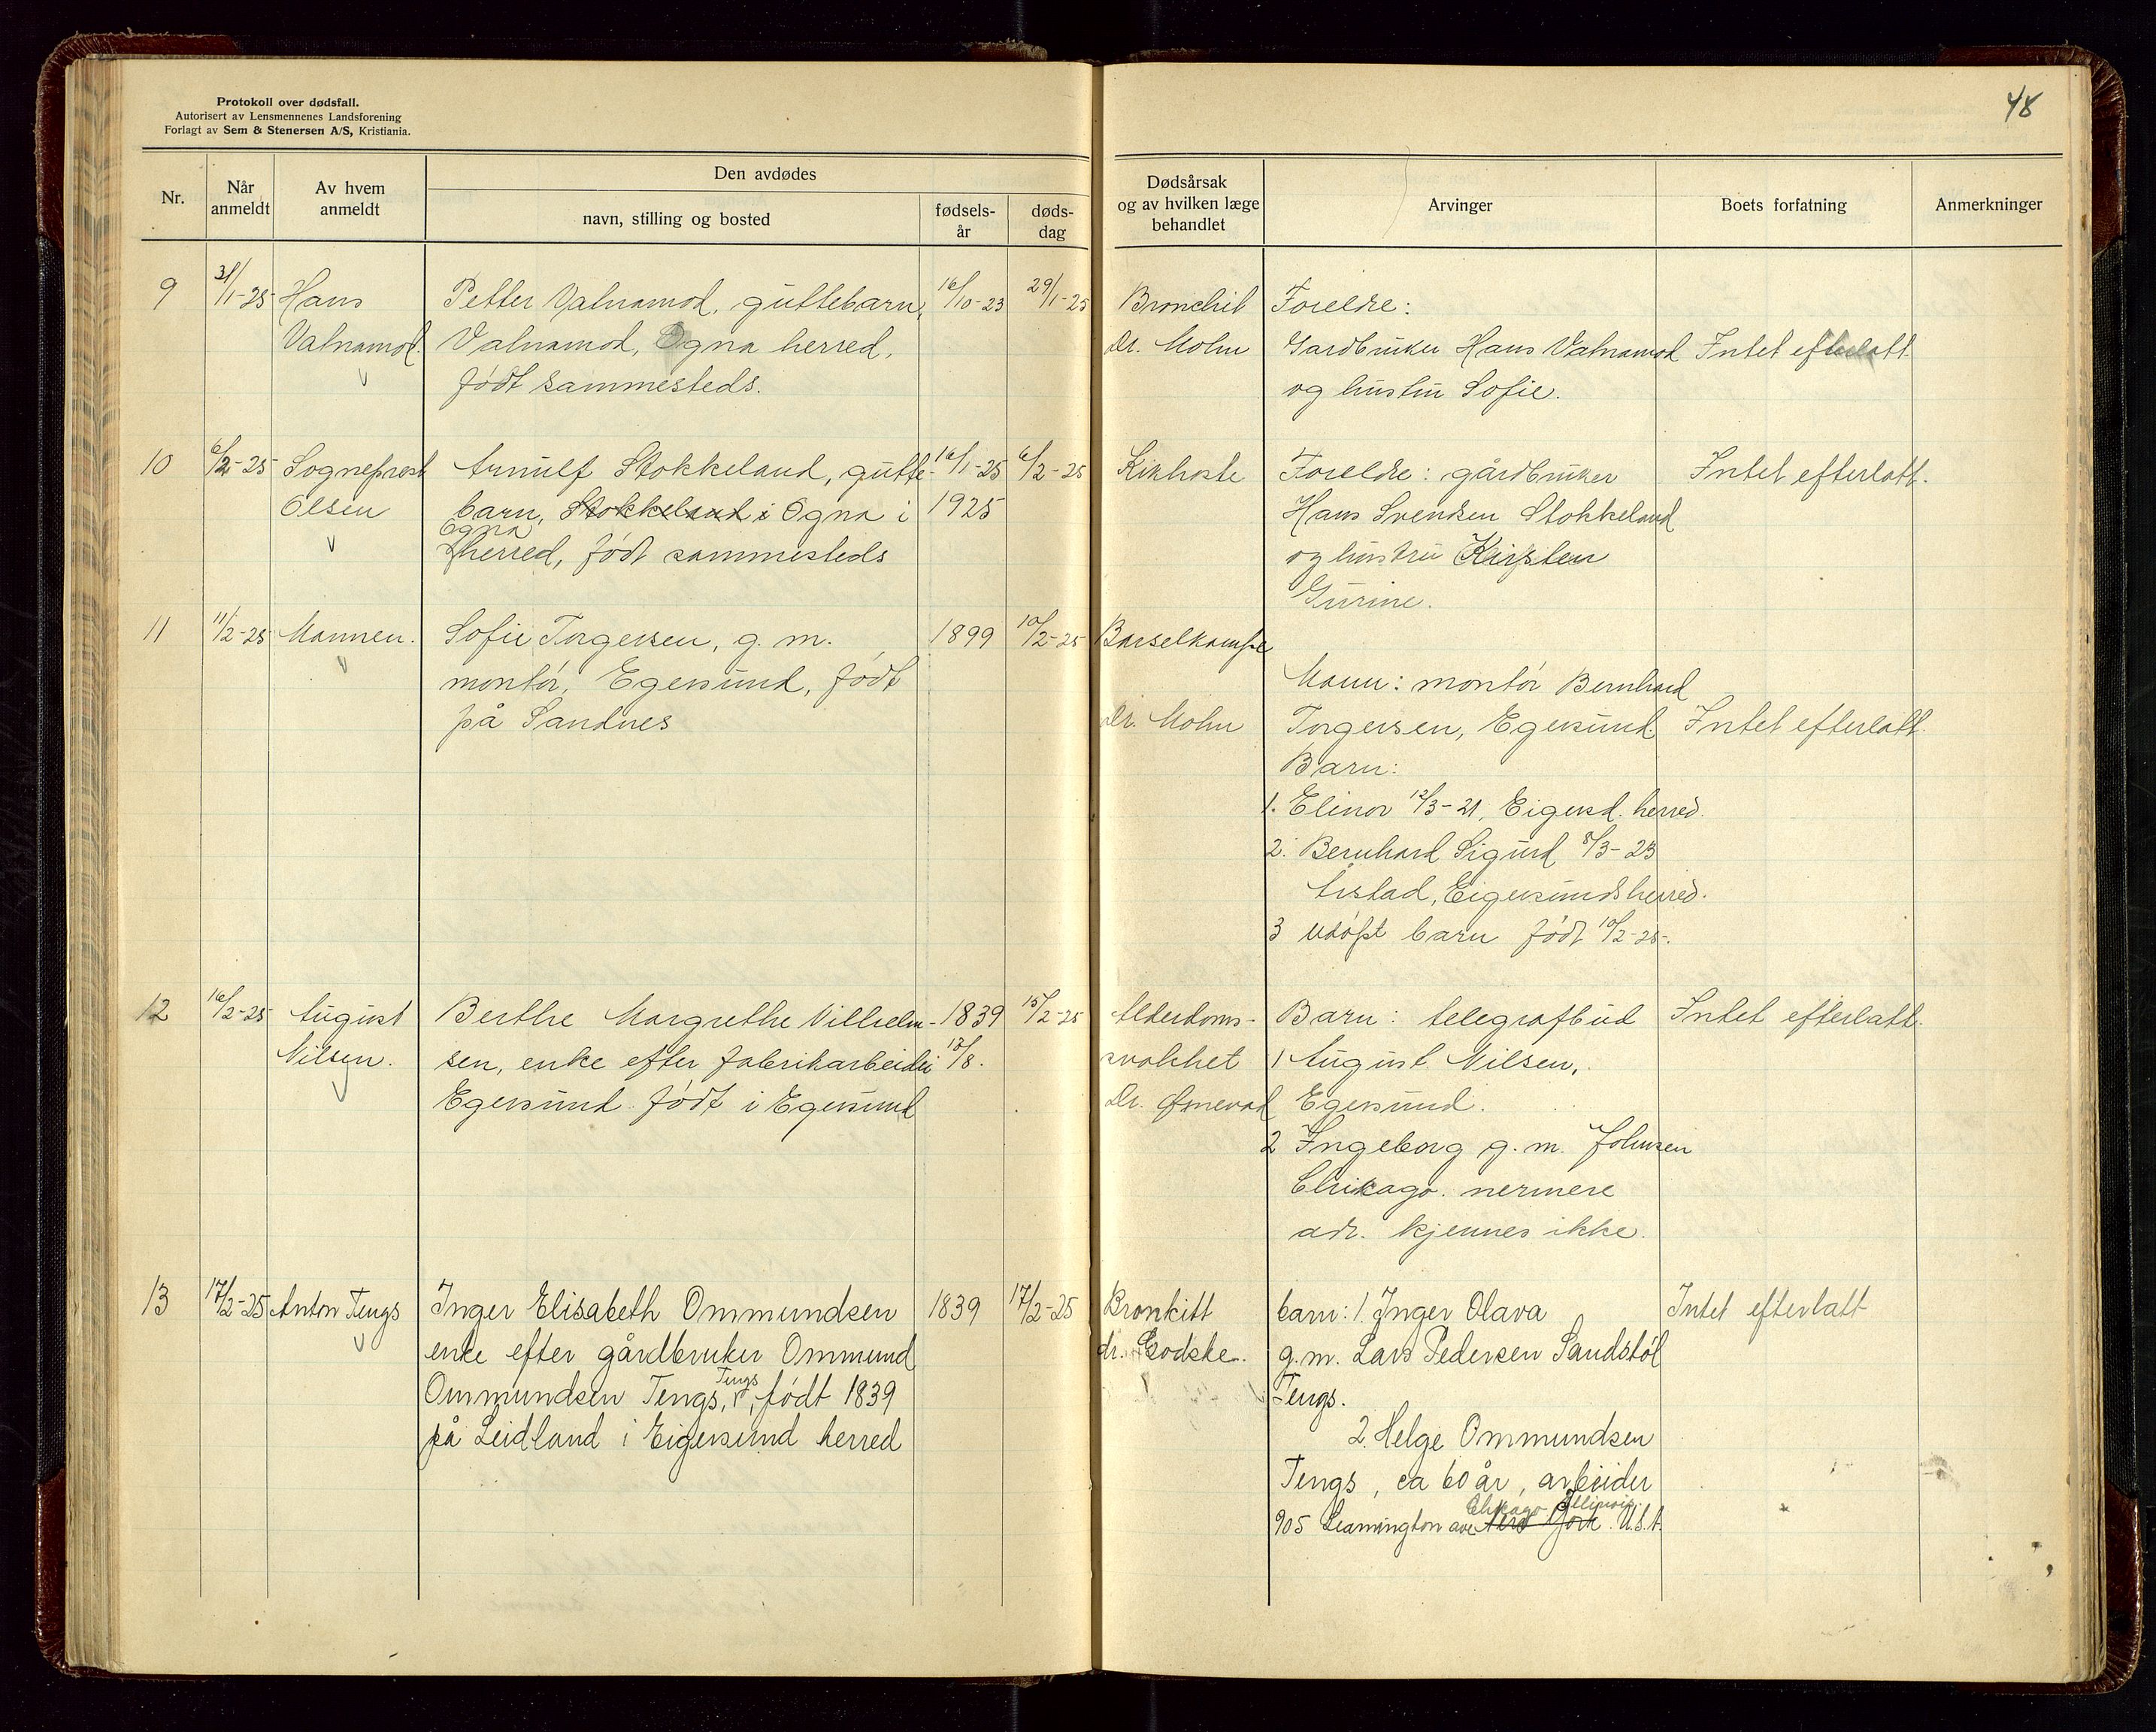 48
Protokoll over dødsfall.
Autorisert av Lensmennenes Landsforening
Forlagt av Sem & Stenersen A/S, Kristiania.
Nr.
Når anmeldt
Av hvem anmeldt
Den avdødes
navn, stilling og bosted
fødsels-år
døds-dag
Dødsårsak og av hvilken læge behandlet
Arvinger
Boets forfatning
Anmerkninger
9 31/1-25 Hans Petter Vatnamot, guttebarn, 16/10-23 29/1-25 Bronchit Foreldre:
Vatnamot. Vatnamot, Ogna herred, dr. Mohn Gardbruker Hans Vatnamot Intet efterlatt.
født sammesteds. og hustru Sofie.
10 6/2-25 Sogneprest Arnulf Stokkeland, gutte- 16/1-25 6/2-25 Kikhoste Foreldre: gårdbruker Intet efterlatt.
Olsen barn, Stokkeland i Ogna i 1925 Hans Svendsen Stokkeland
Ogna
herred, født sammesteds og hustru Kirsten
Gurine.
11 11/2-25 Mannen. Sofie Torgersen, g. m. 1899 10/2-25 Barselkrampe
montør, Egersund, født Mann: montör Bernhard
på Sandnes dr. Mohn Torgersen, Egersund. Intet efterlatt.
Barn:
1. Elinor 12/3-21, Eigersd. herred.
2. Bernhard Sigurd 8/3-23
Årstad, Eigersunds herred.
3 udöpt barn født 10/2-25.
12 16/2-25 August Berthe Margrethe Villielm- 1839 15/2-25 Alderdoms- Barn: telegrafbud Intet efterlatt.
Nilsen. sen, enke efter fabrikarbeider 13/8. svakhet 1 August Nilsen,
Egersund født i Egersund Dr. Egersund.
2 Ingeborg g. m. Johnsen
Chikago. nermere
adr. kjennes ikke.
13 17/2-25 Anton Tengs Inger Elisabeth Ommundsen 1839 17/2-25 Bronkitt barn: 1. Inger Olava Intet efterlatt
enke efter gårdbruker Ommund dr. Godske. g.m. Lars Pedersen Sandstöl
Tengs
Ommundsen Tengs, født 1839 Tengs.
på Leidland i Eigersund herred 2. Helge Ommundsen
Tengs, ca 60 år, arbeider
Chikago Illinois
905 Leamington ave New York. U.S.A.